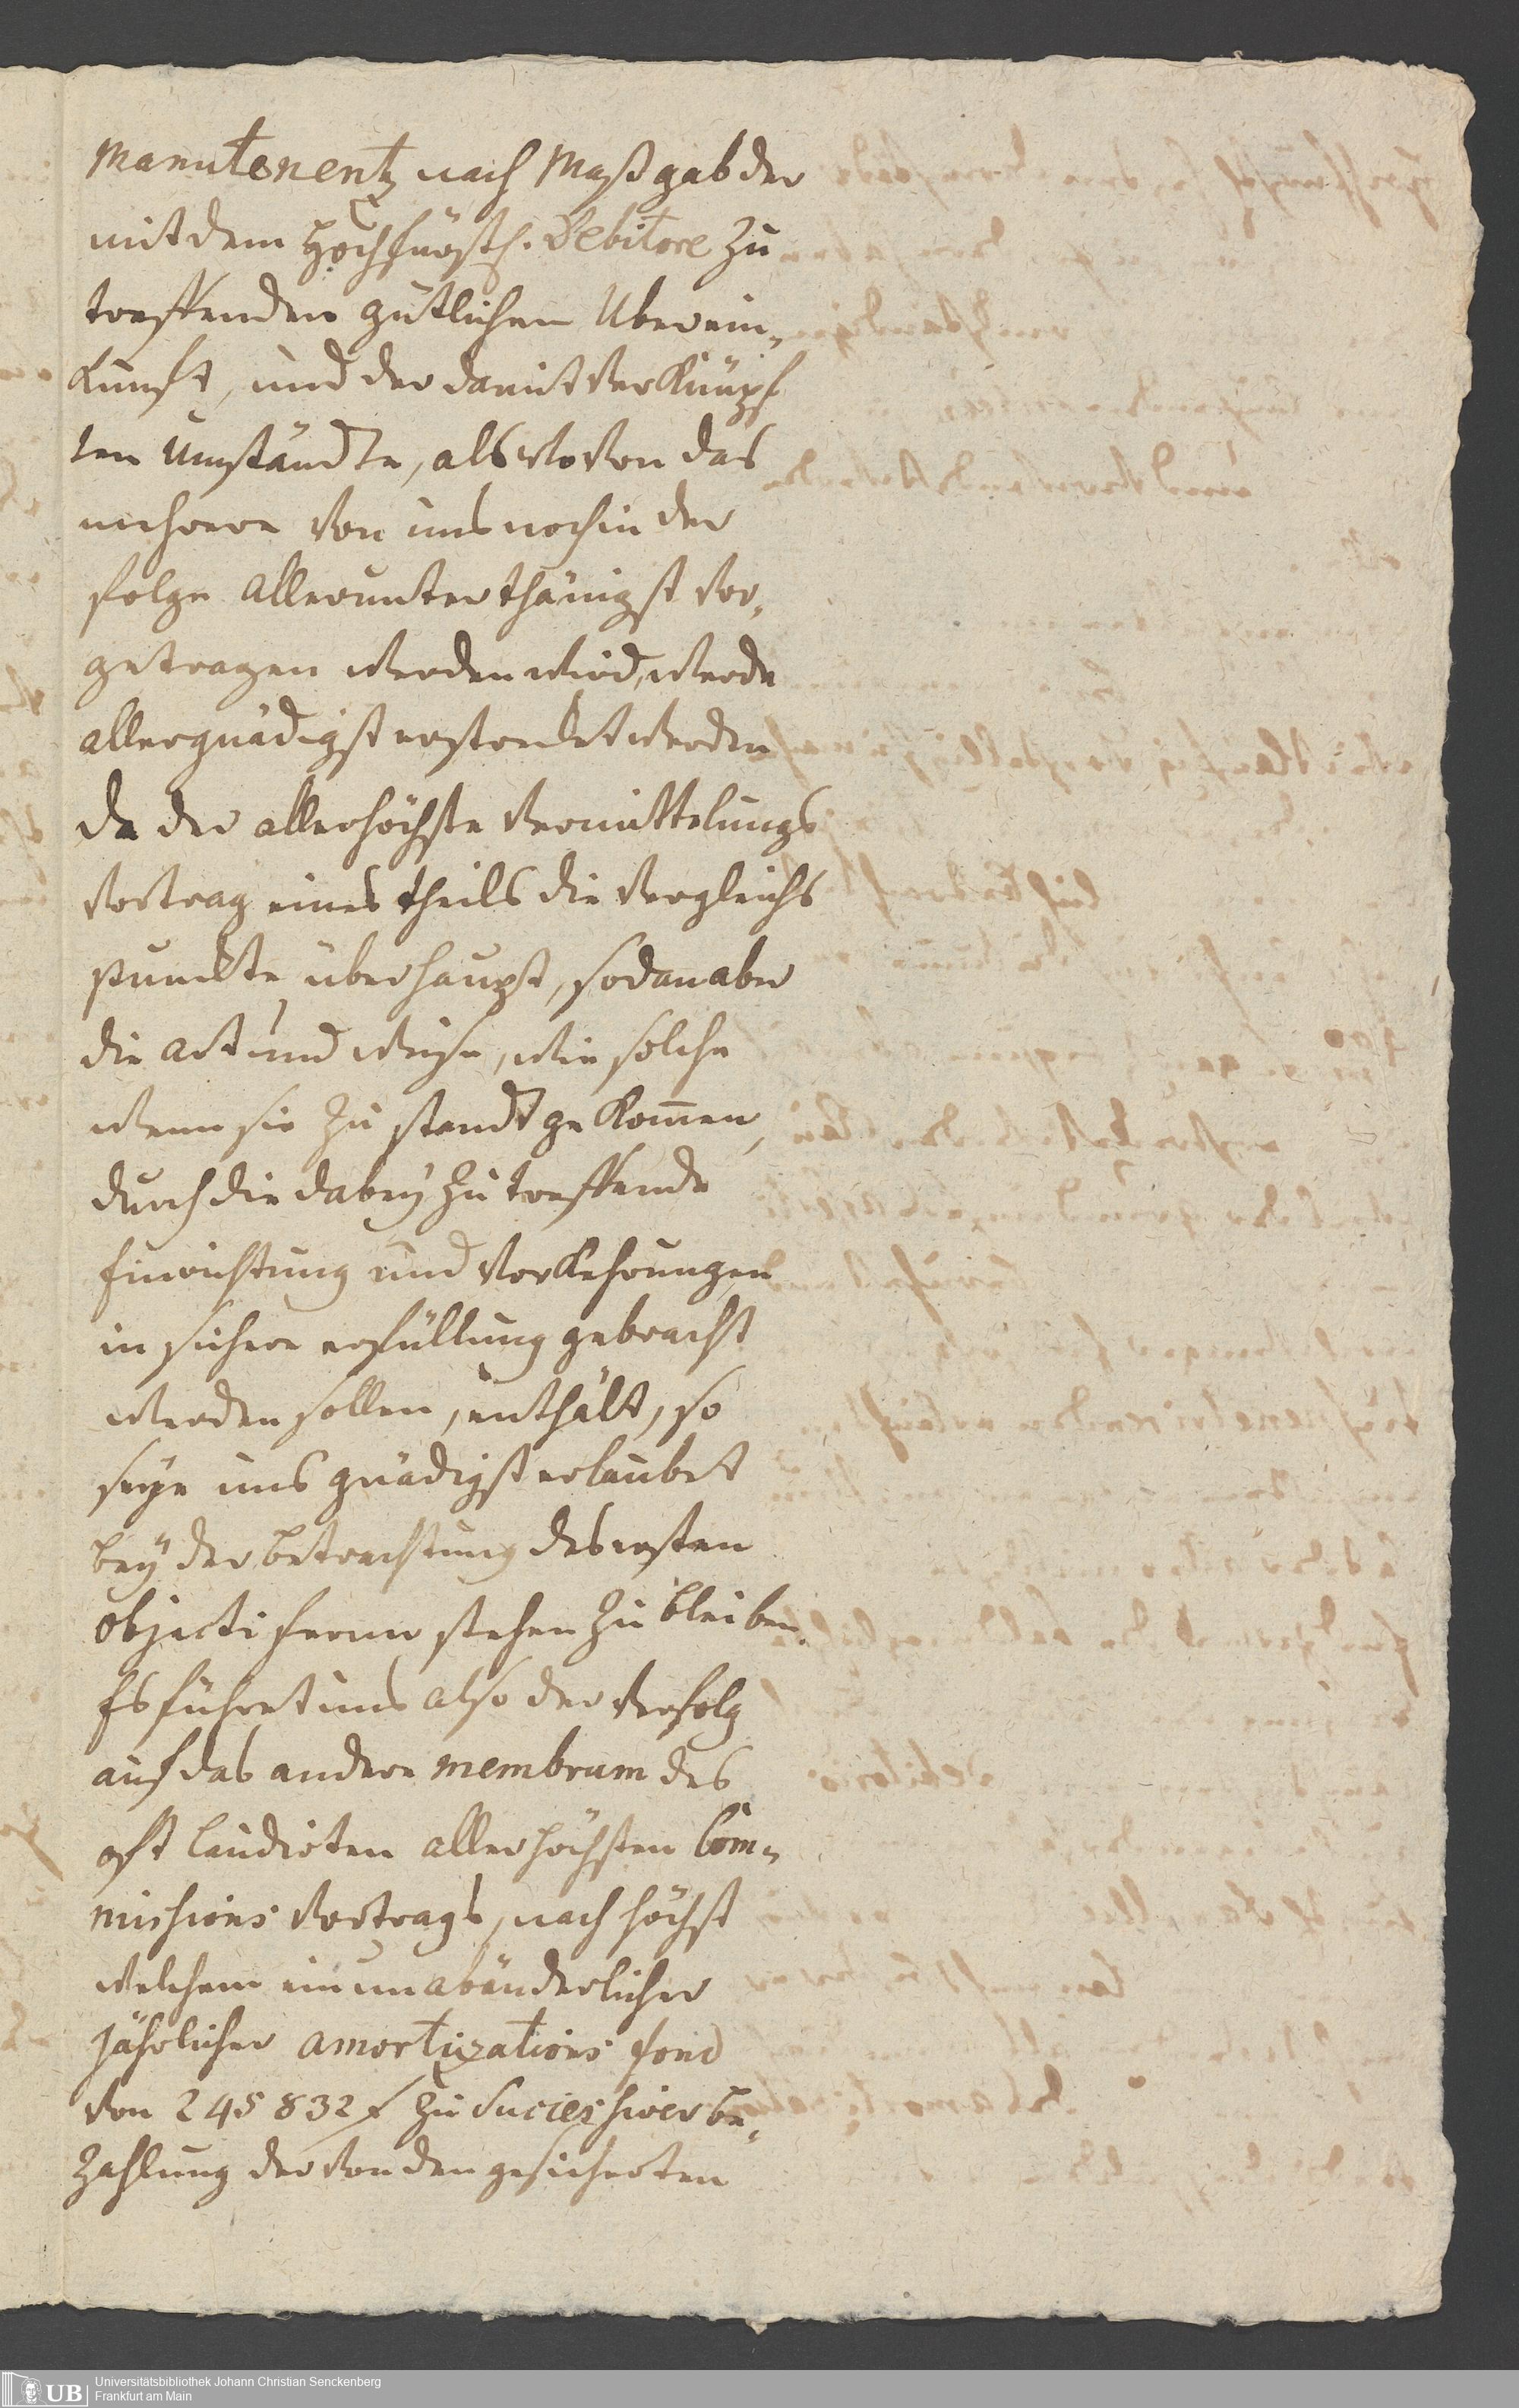 Manutenentz nach Maßgab der
mit dem Hochfürstl. Debitore zu
treffenden gütlichen Uberein„
kunft, und der damit verknüpf
ten Umständte, als wovon das
mehrere von uns noch in der
folge allerunterthänigst vor„
getragen werden wird, werde
allergnädigst erstrecket werden
da der allerhöchste Vermittelungs
Vortrag eines theils die Vergleichs
Punckte überhaupt, sodan aber
die art und weise, wie solche
wenn sie zu standt gekom̄en,
durch die dabey zu treffende
Einrichtung und Vorkehrungen
in sichere erfüllung gebracht
werden sollen, enthält, so
seye uns gnädigst erlaubet
bey der betrachtung des ersten
objecti ferner stehen zu bleiben.
Es führet uns also der Verfolg
auf das andere membrum des
oft laudirten allerhöchsten Com„
missions Vortrags, nach höchst
welchem ein unabänderlicher
Jährlicher amortizations fond
von 245832 f zu successiver be„
zahlung der von den gesicherten
Universitätsbibliothek Johann Christian Senckenberg
Frankfurt am Main
UB